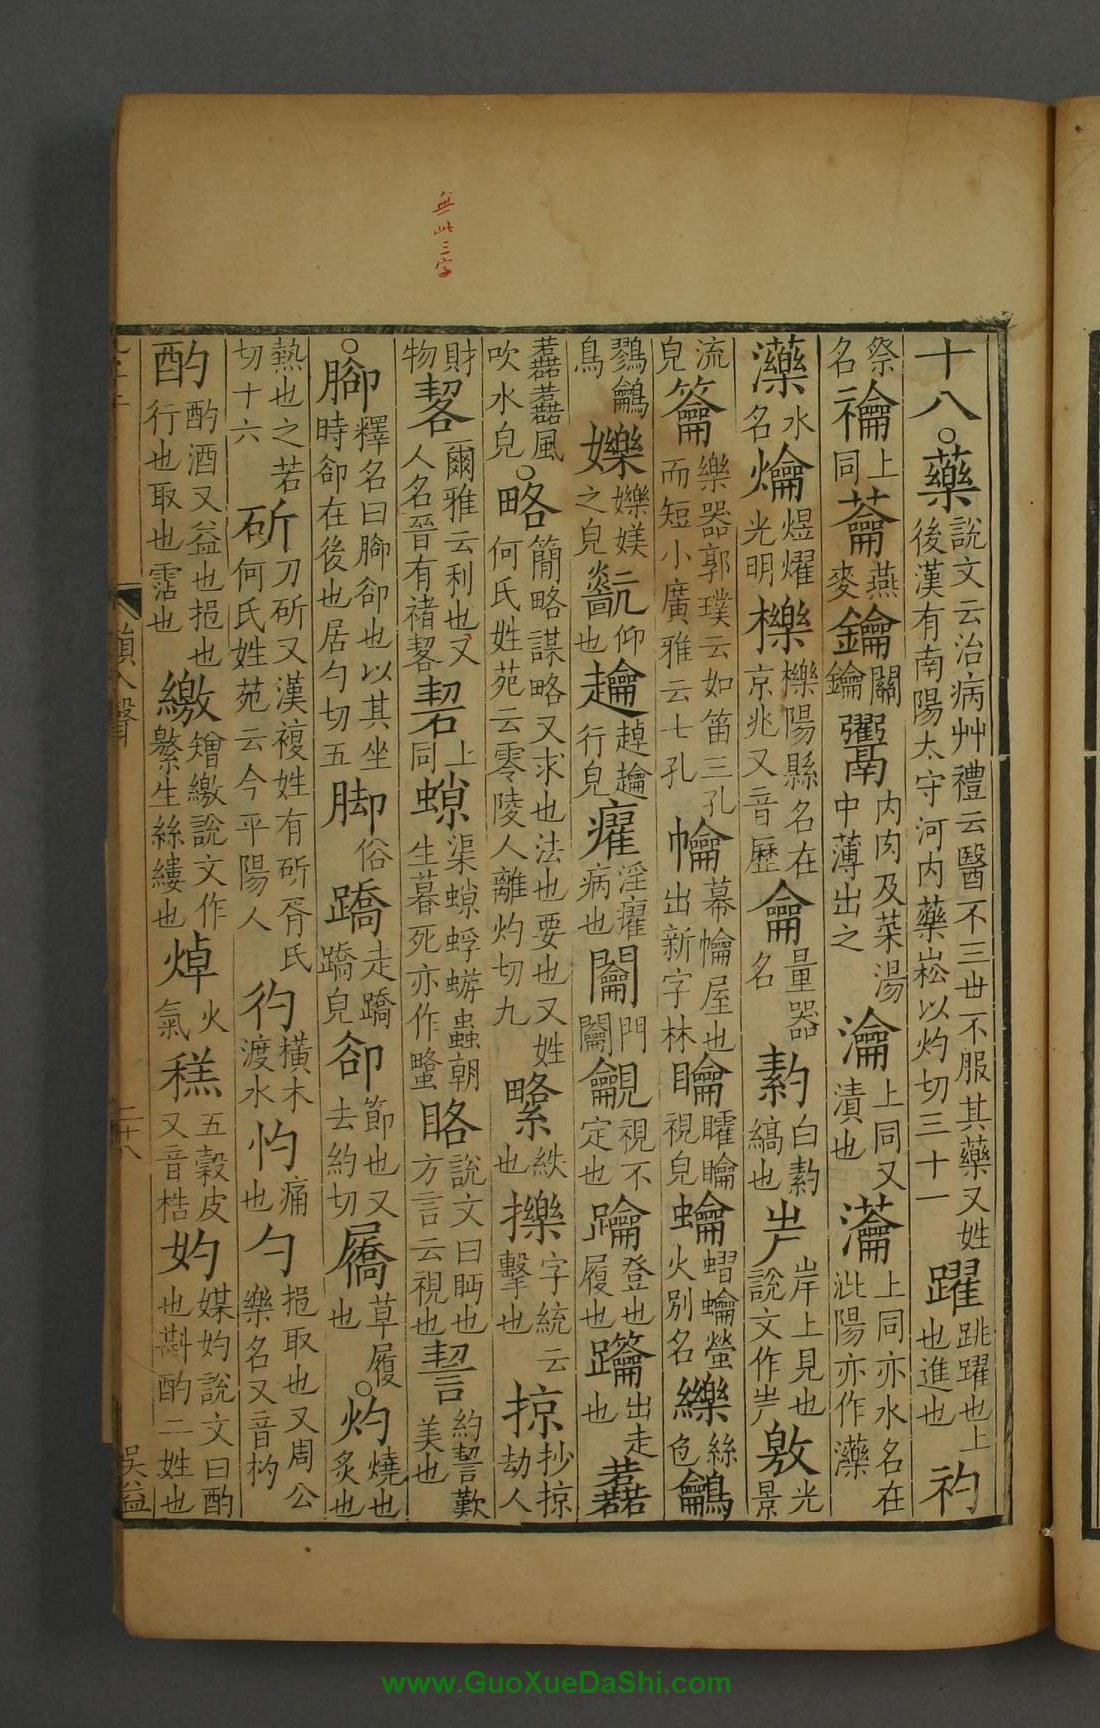 無此三字
十八○藥說文云治病艸禮云醫不三丗不服其藥又姓後漢有南陽太守河內藥崧以灼切三十一躍跳躍也上也進也礿
祭名禴上同蘥燕麥鑰關鑰䰞內肉及菜湯中薄出之瀹上同又漬也䕯上同亦水名在泚陽亦作濼
濼水名爚煜爚光明櫟櫟陽縣名在京兆又音歷龠量器名䋤白䋤縞也屵岸上見也說文作屵敫光景
流皃籥樂器郭璞云如笛三孔而短小廣雅云七孔㡋幕㡋屋也出新字林䁯矐䁯視皃蠰螢火別名纅絲色鸙
鷚鸙鳥嬫嬫媄之皃仰也趯趠䠯行皃癯淫癯病也闟門闟覦視不定也踰登也履也躒出走也䕾
䕾䕾風吹水皃○略簡略謀略又求也法也要也又姓何氏姓苑云零陵人離灼切九䌎紩也擽字統云擊也掠抄掠劫人
財物䂮爾雅云利也又人名晉有褚䂮䂮上同䗉渠䗉蜉蝣蟲朝生暮死亦作蟧䀩說文曰眄也方言云視也䂮約䂮歎美也
○腳釋名曰腳卻也以其坐時卻在後也居勺切五脚俗蹻走蹻蹻皃卻節也又去約切屩草履也○灼燒也炙也
熱也之若切十六斫刀斫又漢複姓有斫胥氏何氏姓苑云今平陽人彴橫木渡水灼痛也勺挹取也又周公樂名又音杓
酌酌酒又益也挹也行也取也霑也繳矰繳說文作繁生絲縷也焯火氣䊞五穀皮又音梏妁媒妁說文曰酌也斟酌二姓也
韻入聲
二十八
吳益
www.GuoXueDaShi.com